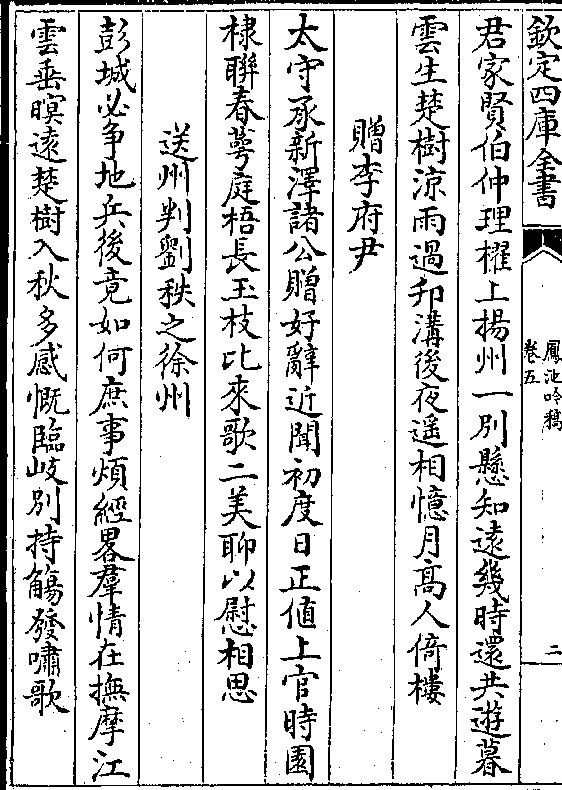 欽定四庫全書
鳳池吟稿
卷五
二
君家賢伯仲理櫂上揚州一別懸知遠幾時還共遊暮
雲生楚樹涼雨過邗溝後夜遥相憶月高人倚樓
贈李府尹
太守承新澤諸公贈好辭近聞初度日正值上官時園
棣聯春萼庭梧長玉枝比來歌二美聊以慰相思
送州判劉秩之徐州
彭城必争地兵後竟如何庶事煩經畧羣情在撫摩江
雲垂暝逺楚樹入秋多感慨臨岐別持觴發嘯歌